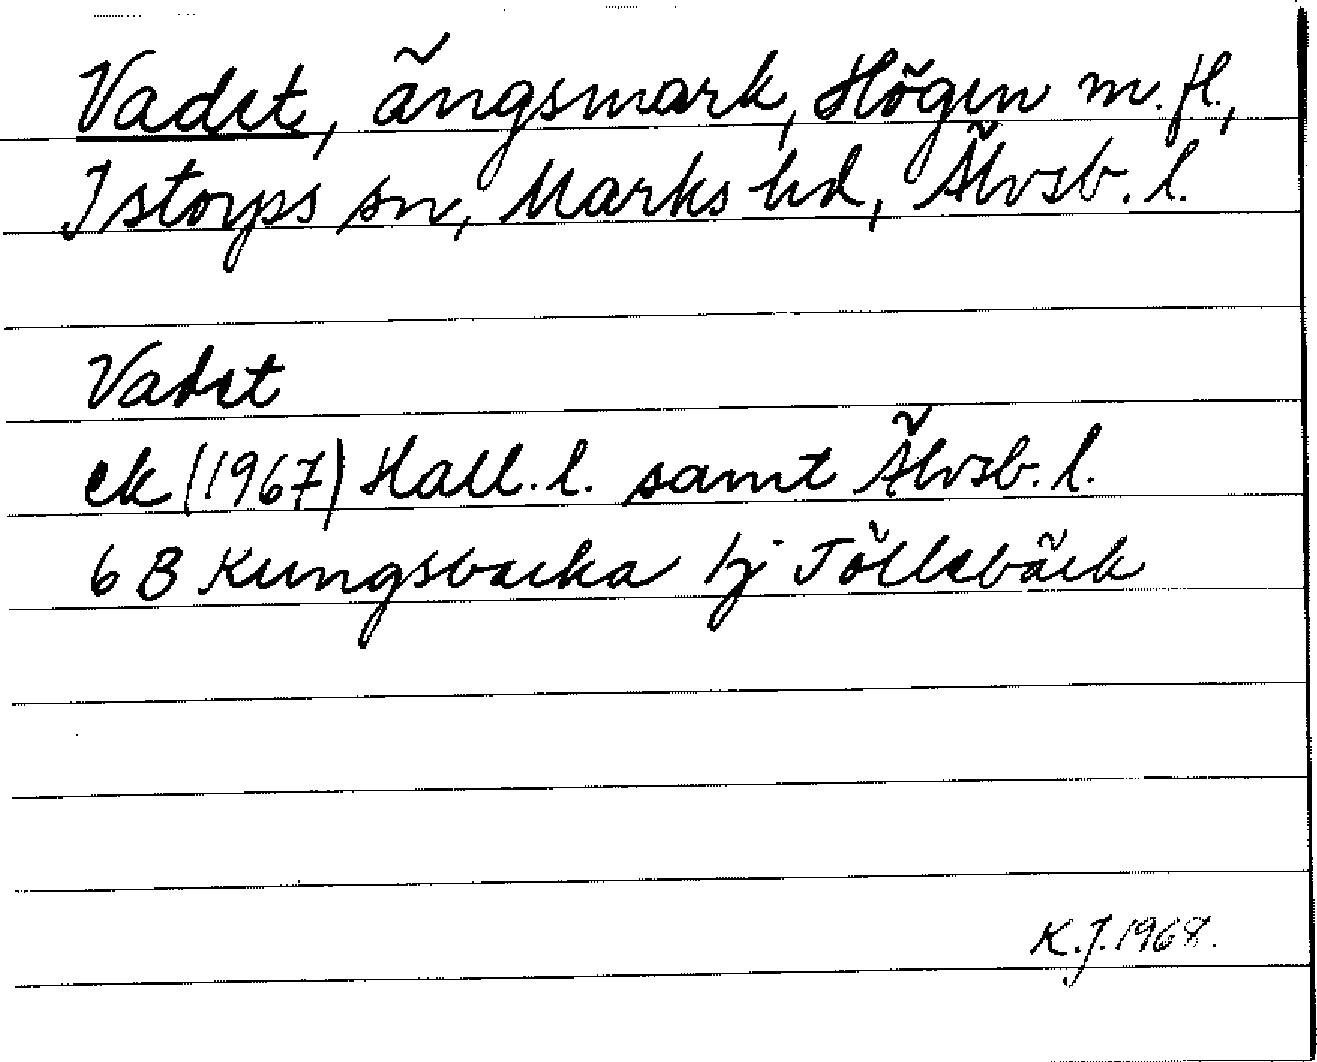 Vadet, ängsmark, Högen m.fl.,
Istorps sn, Marks hd, Älvsb. l.
Vadet
ek (1967) Hall. l. samt Älvsb. l.
6 B Kungsbacka 1j Töllebäck
K.J. 1968.